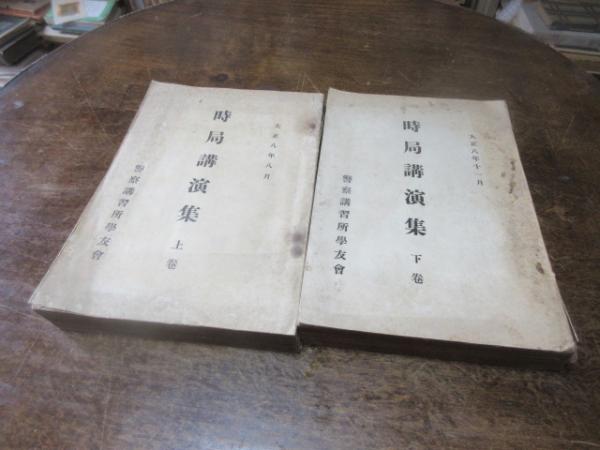 大正八年八月
時局講演集 上卷
警察講習所學友會
大正八年十一月
時局講演集 下卷
警察講習所學友會